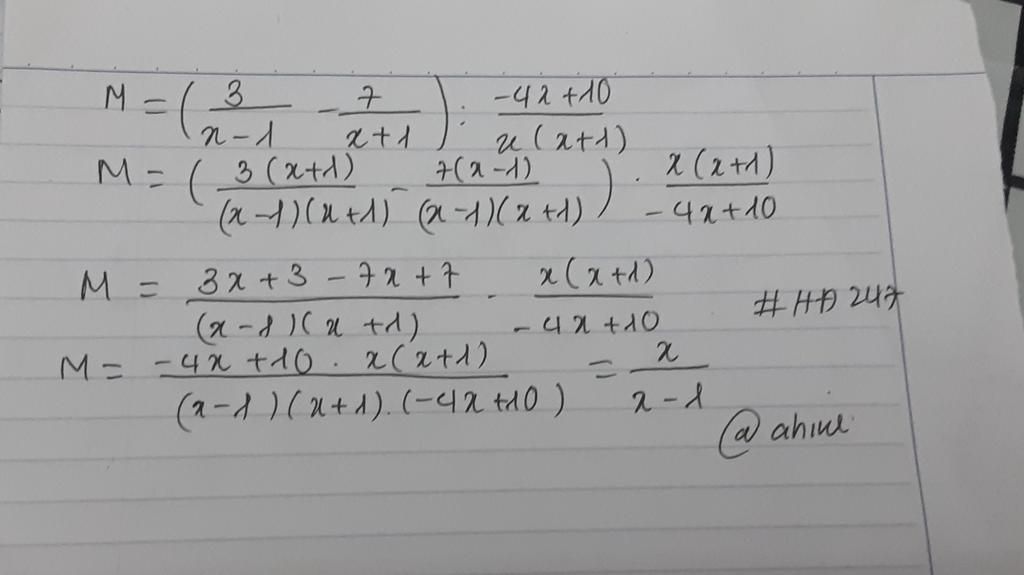 M = ( 3/(x-1) - 7/(x+1) ) : (-4x+10)/(x(x+1))
M = ( 3(x+1)/((x-1)(x+1)) - 7(x-1)/((x-1)(x+1)) ) . x(x+1)/(-4x+10)
M = (3x+3-7x+7)/((x-1)(x+1)) . x(x+1)/(-4x+10)
#HD247
M = (-4x+10 . x(x+1))/((x-1)(x+1).(-4x+10)) = x/(x-1)